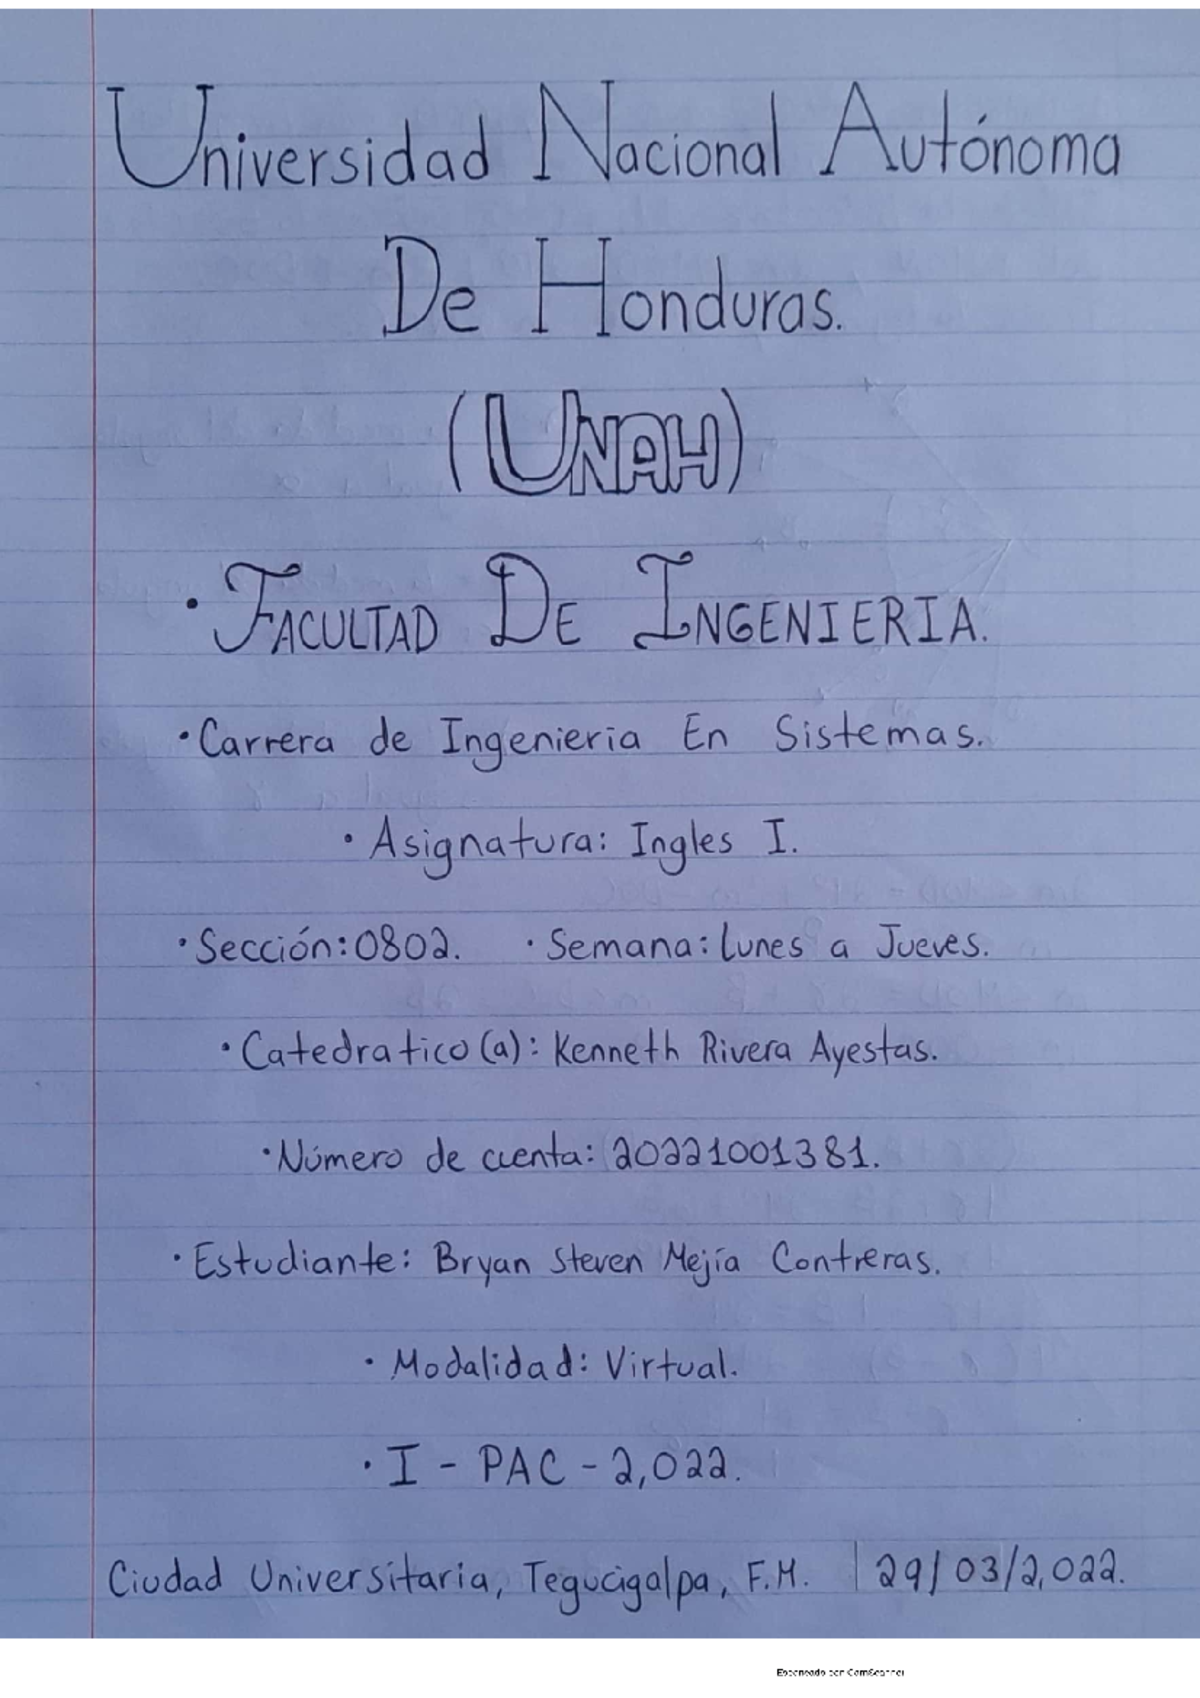 Universidad Nacional Autónoma
De Honduras.
(UNAH)
• FACULTAD DE INGENIERIA.
• Carrera de Ingenieria En Sistemas.
• Asignatura: Ingles I.
• Sección: 0802. • Semana: Lunes a Jueves.
• Catedratico (a): Kenneth Rivera Ayestas.
• Número de cuenta: 20221001381.
• Estudiante: Bryan Steven Mejía Contreras.
• Modalidad: Virtual.
• I - PAC - 2,022.
Ciudad Universitaria, Tegucigalpa, F.M. | 29/03/2,022.
Escaneado con CamScanner